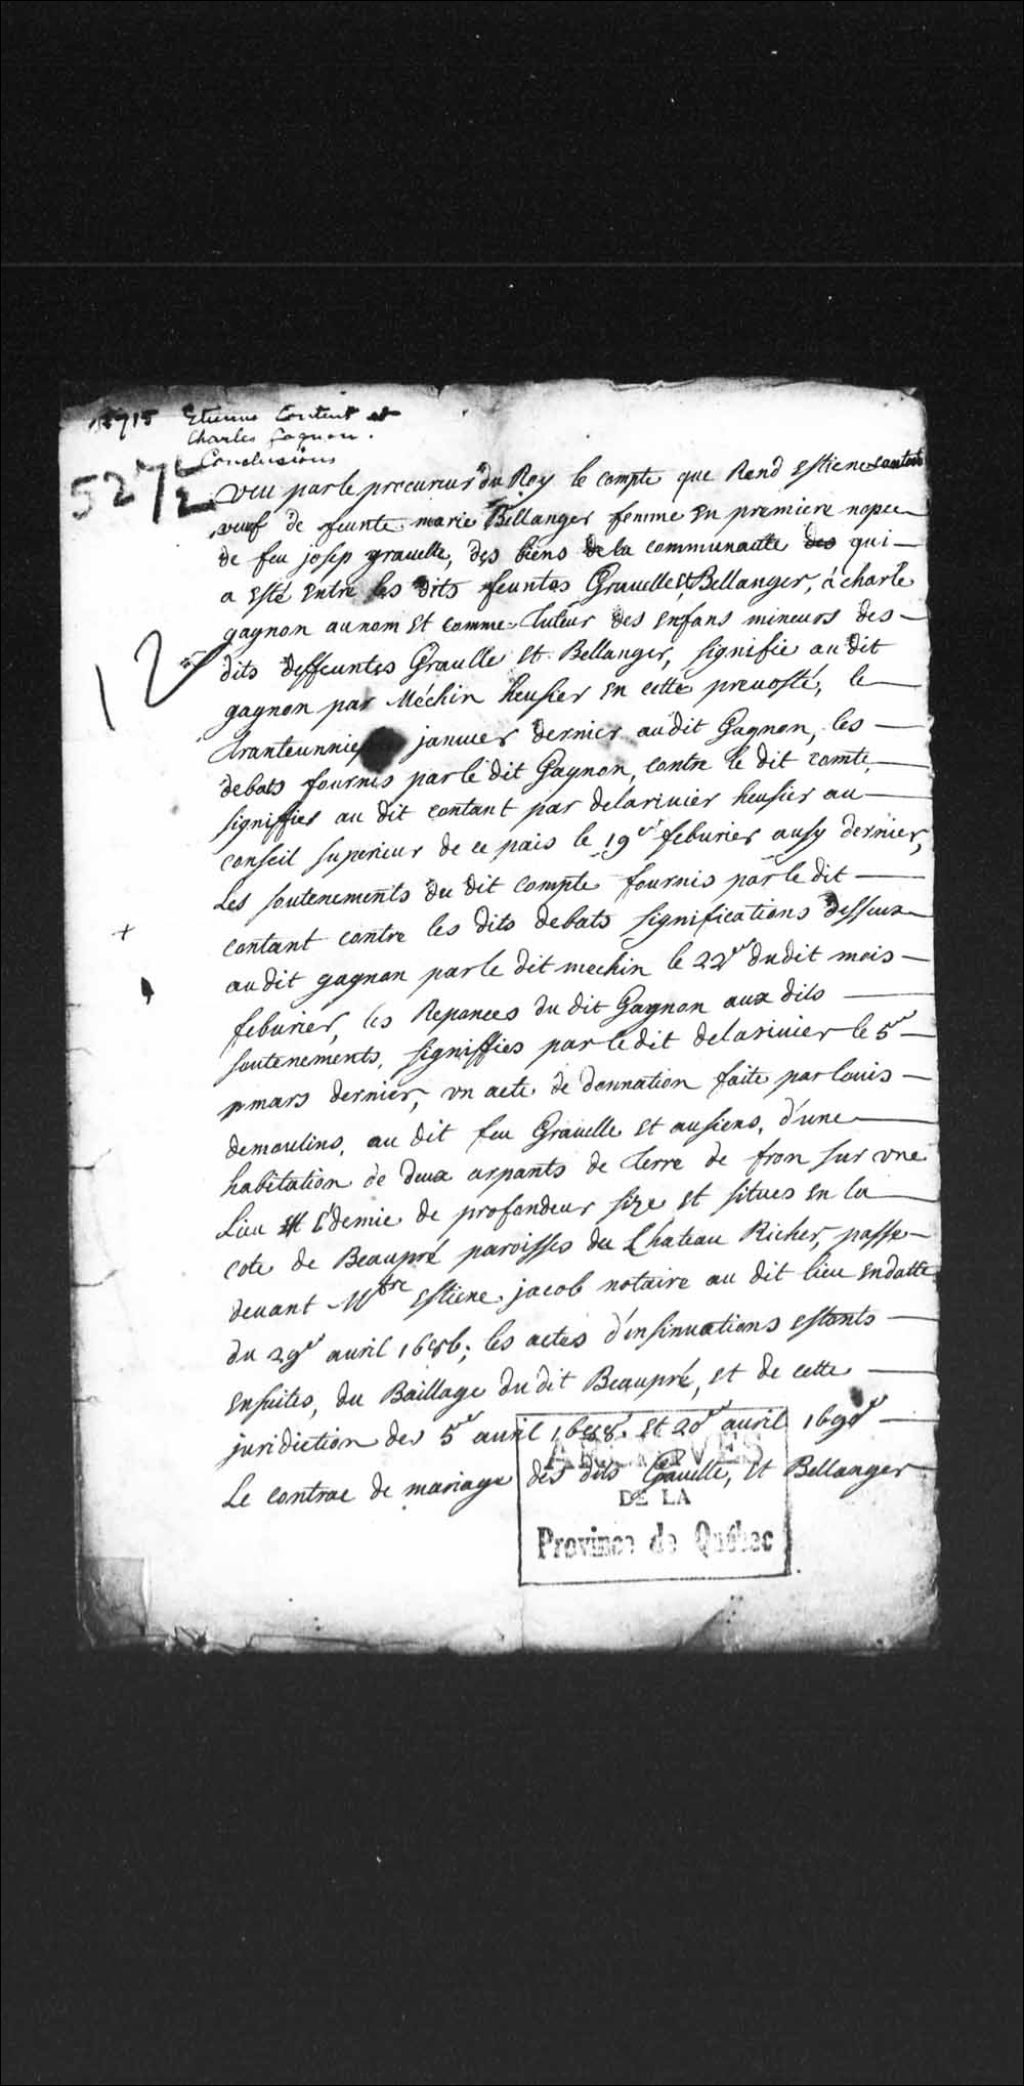 Etienne Content et
Charles Gagnon.
Conclusions
527 1/2
12
Veu par le procureur du Roy le compte que Rend Estiene contant
veuf de feunte marie Bellanger femme en premiere nopce
de feu josep grauelle, des biens de la communaute des qui
a esté entre les dits feuntes Grauelle et Bellanger, a charle
gagnon au nom et comme Tuteur des enfans mineurs des
dits deffeuntes Graulle et Bellanger, signifie au dit
gagnon par Méchin heusier en cette preuosté, le
januier dernier au dit Gagnon, les
debats fournis par le dit Gagnon, contre le dit comte
signiffier au dit contant par delariuier heusier au
conseil superieur de ce pais le 19e feburier ausy dernier,
Les soutenements du dit compte fournis par le dit
contant contre les dits debats significations desseux
au dit gagnon par le dit mechin le 22e dudit mois
feburier, les Reponces du dit Gagnon aux dits
soutenements, signiffies par le dit delariuier le 5e
mars dernier, vn acte de donnation faite par louis
demoulins, au dit feu Grauelle et ausiens, d'une
habitation de deux arpants de terre de fron sur vne
Lieu et demie de profondeur size et situes en la
cote de Beaupré paroisses du Chateau Richer, passe
deuant Mtre Estiene jacob notaire au dit lieu en datte
du 29e auril 1686; les actes d'insinuations estants
ensuites, du Baillage du dit Beaupré, et de cette
juridiction des 5e auril 1688. et 20e auril 1690
Le contrac de mariage des dits Grauelle, et Bellanger
ARCHIVES
DE LA
Province de Québec